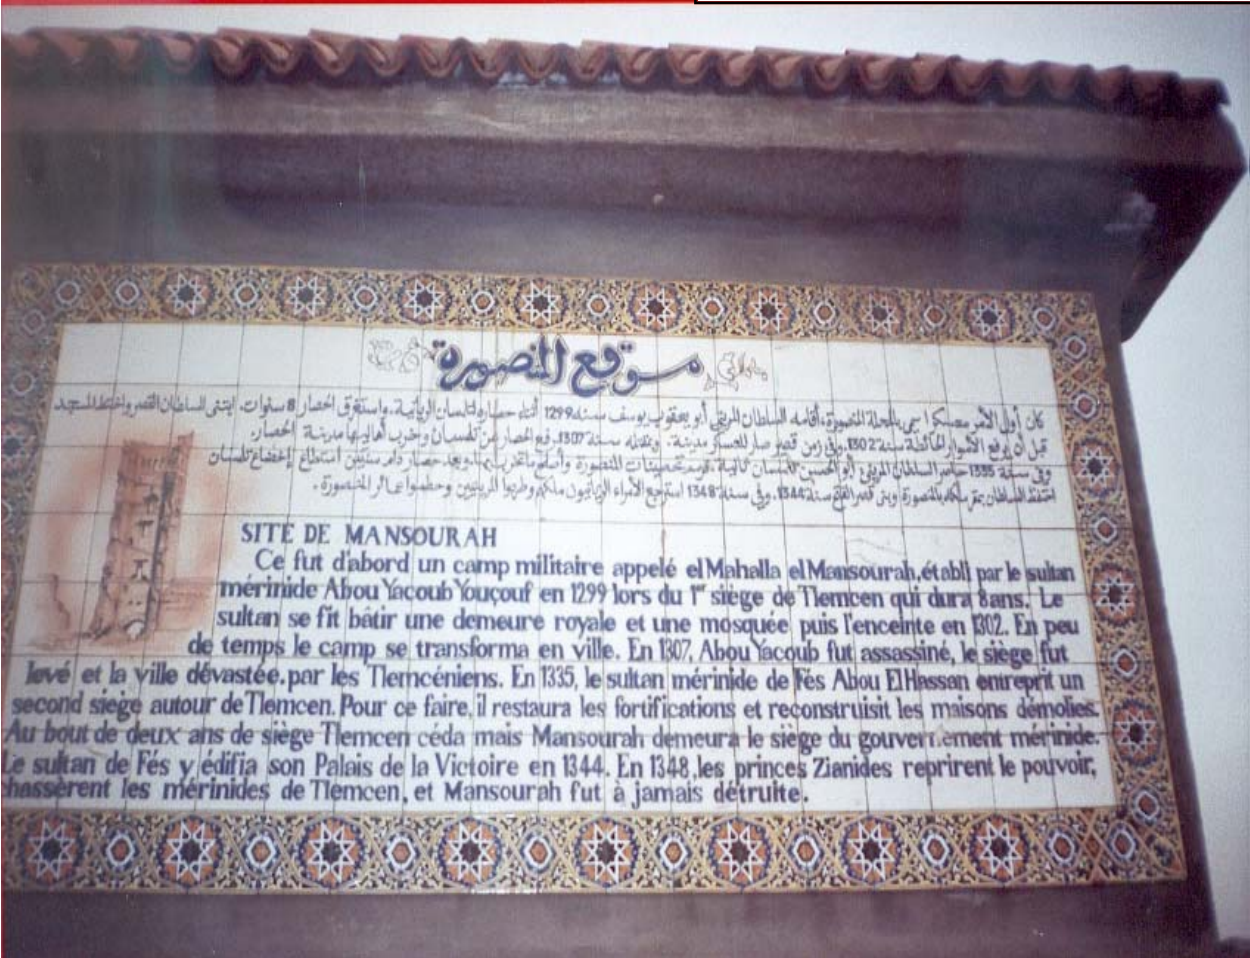 موقع المنصورة
كان أول الأمر معسكرا سمي بالمحلة المنصورة، أقامه السلطان المريني أبو يعقوب يوسف سنة 1299 أثناء حصاره لتلمسان الزيانية، واستغرق الحصار 8 سنوات. ابتنى السلطان القصر واختط المسجد
قبل أن يرفع الأسوار المحائطة سنة 1302. وفي زمن قصير صار المعسكر مدينة. وبمقتله سنة 1307، رفع الحصار عن تلمسان وخرب أهاليها مدينة الحصار.
وفي سنة 1335 حاصر السلطان المريني أبو الحسين تلمسان ثانية، فرمم تحصينات المنصورة وأصلح ما تخرب بها، وبعد حصار دام سنتين استطاع إخضاع تلمسان
احتفظ السلطان بمقر ملكه بالمنصورة وبنى قصر الفتح سنة 1344. وفي سنة 1348 استرجع الأمراء الزيانيون ملكهم وطردوا المرينيين وحطموا عمائر المنصورة.
SITE DE MANSOURAH
Ce fut d'abord un camp militaire appelé el Mahalla el Mansourah, établi par le sultan
mérinide Abou Yacoub Youçouf en 1299 lors du 1er siège de Tlemcen qui dura 8 ans. Le
sultan se fit bâtir une demeure royale et une mosquée puis l'enceinte en 1302. En peu
de temps le camp se transforma en ville. En 1307, Abou Yacoub fut assassiné, le siège fut
levé et la ville dévastée, par les Tlemcéniens. En 1335, le sultan mérinide de Fés Abou El Hassan entreprit un
second siège autour de Tlemcen. Pour ce faire, il restaura les fortifications et reconstruisit les maisons démolies.
Au bout de deux ans de siège Tlemcen céda mais Mansourah demeura le siège du gouvernement mérinide.
Le sultan de Fés y édifia son Palais de la Victoire en 1344. En 1348, les princes Zianides reprirent le pouvoir,
chassèrent les mérinides de Tlemcen, et Mansourah fut à jamais détruite.